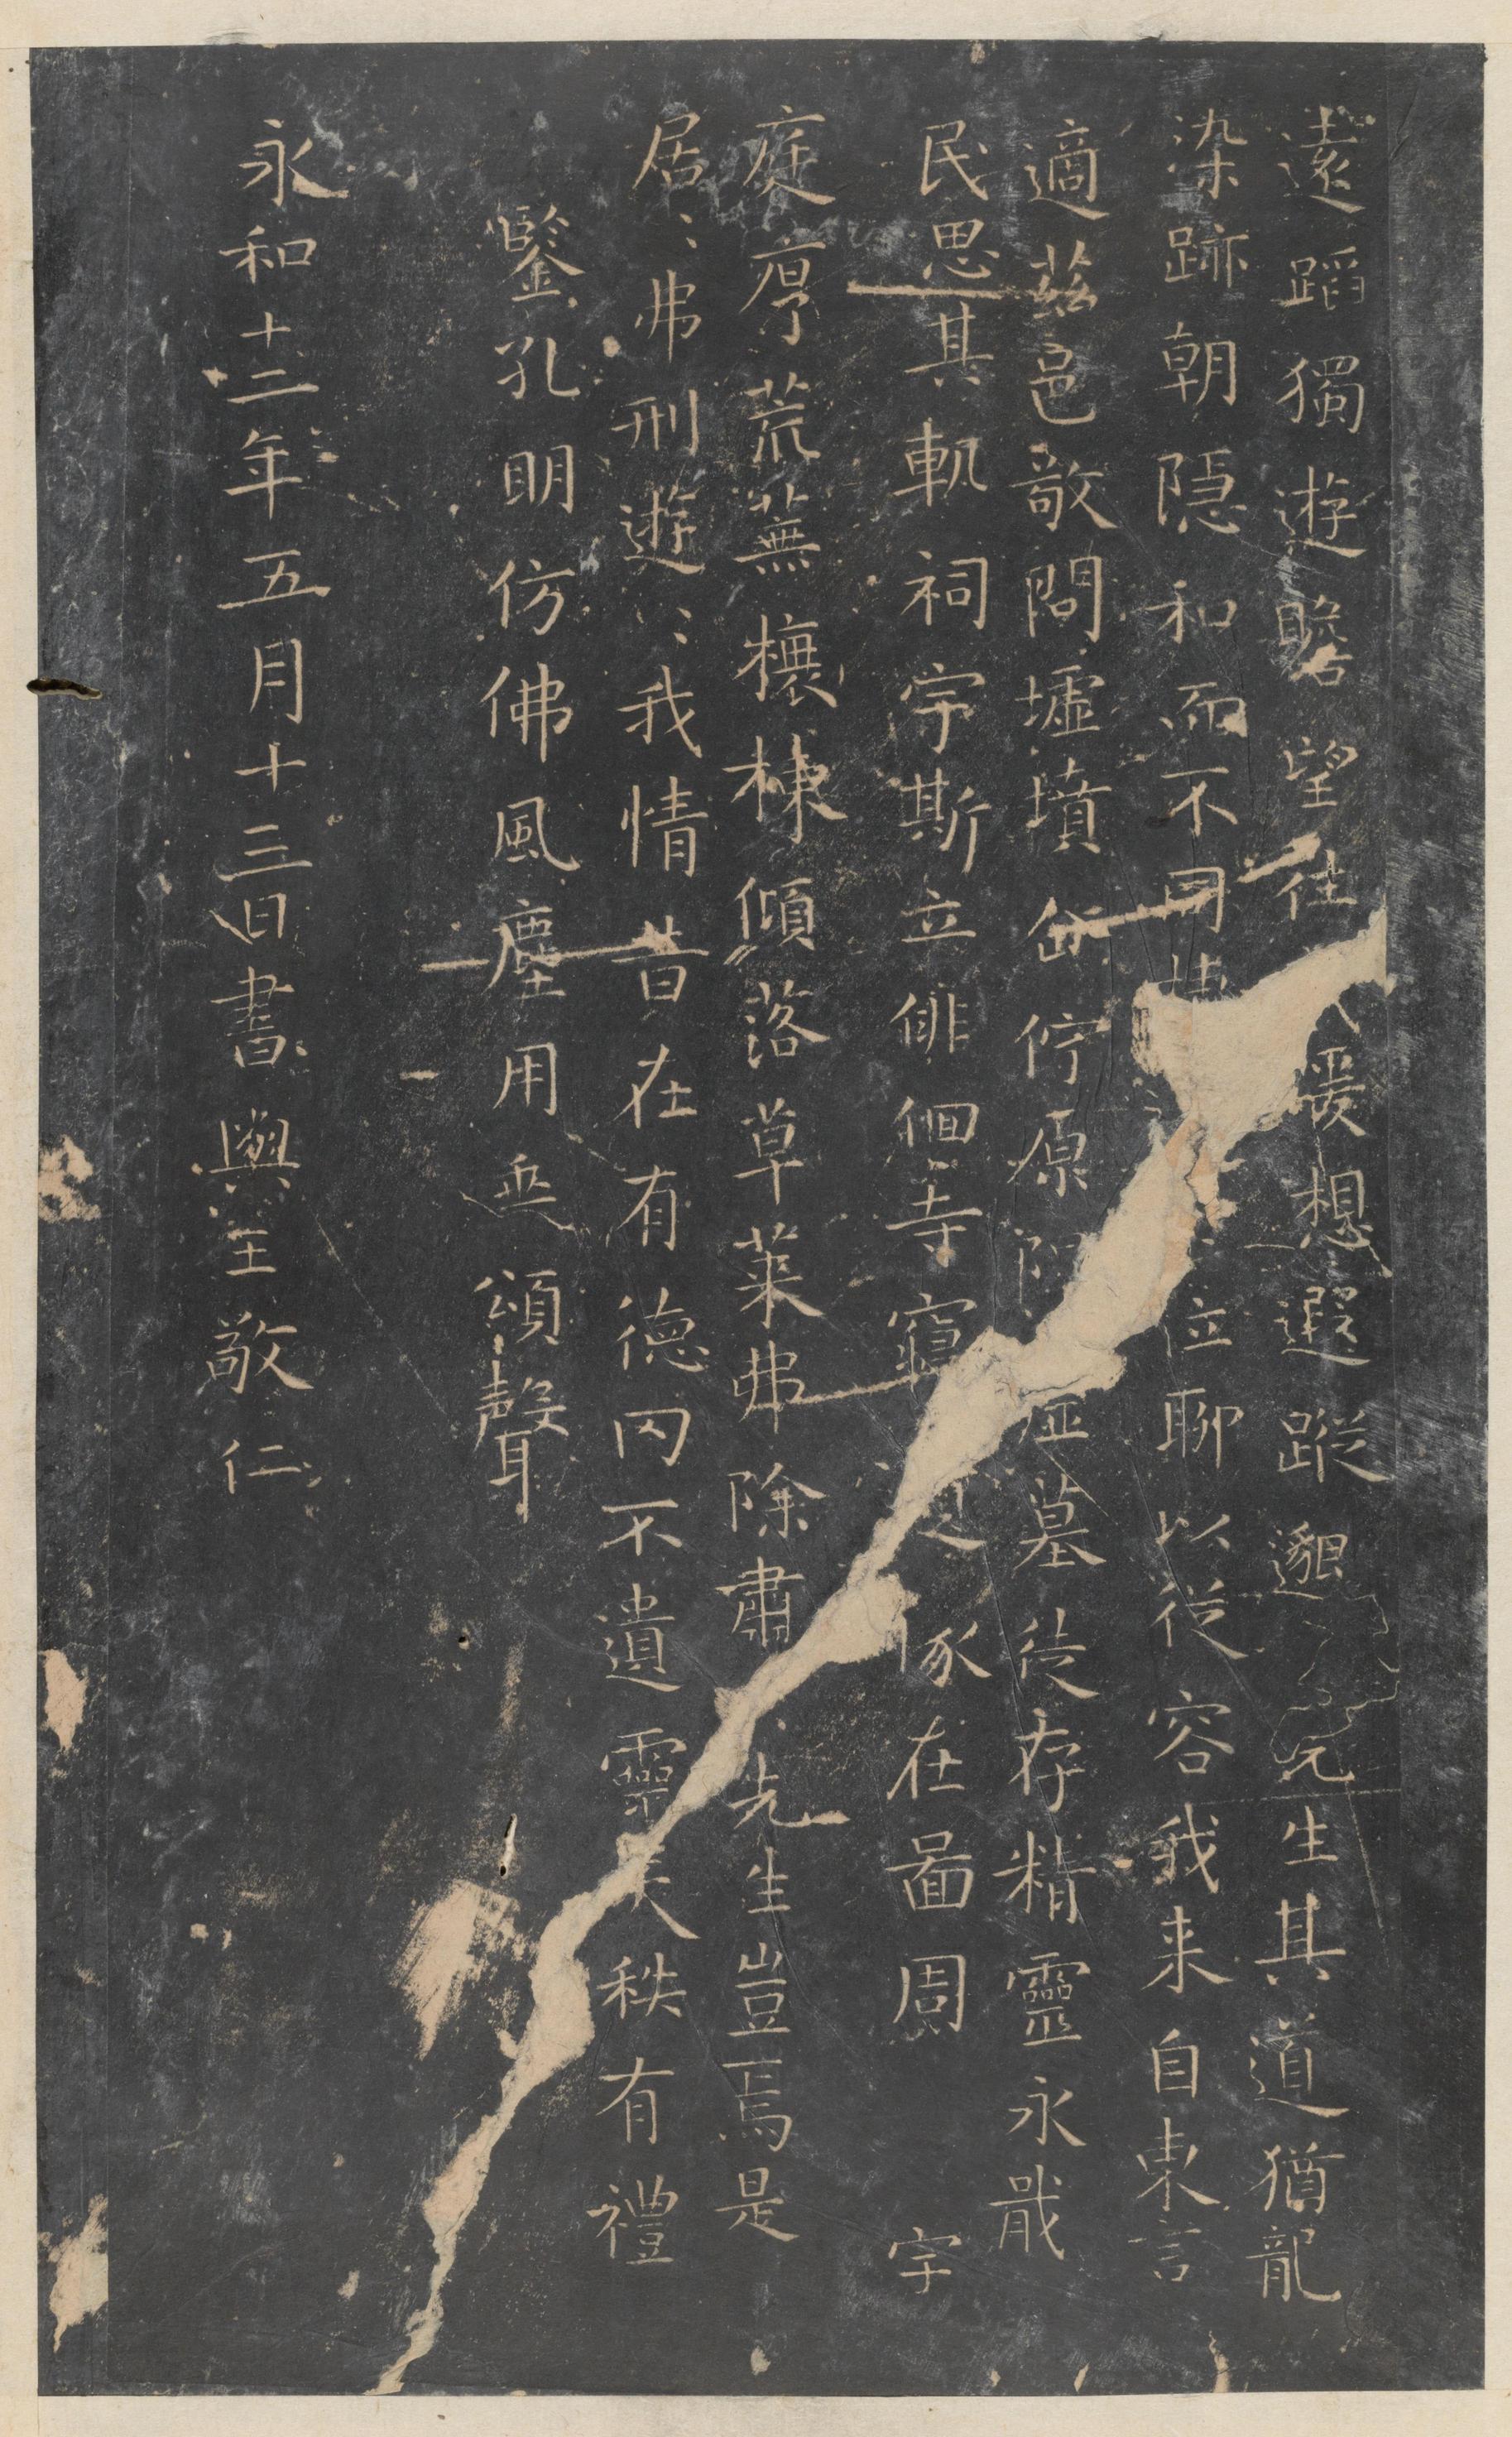 遠蹈獨遊瞻望往代爰想遐蹤邈先生其道猶龍
染跡朝隱和而不同棲立聊以從容我来自東言
適茲邑敬問墟墳佇原隰墟墓徒存精靈永戢
民思其軌祠宇斯立俳佪寺寢遺在啚周宇
庭序荒蕪榱棟傾落草萊弗除肅先生豈焉是
居、弗刑遊、我情昔在有德罔不遺靈天秩有禮
鑒孔明仿佛風塵用垂頌聲
永和十二年五月十三日書與王敬仁